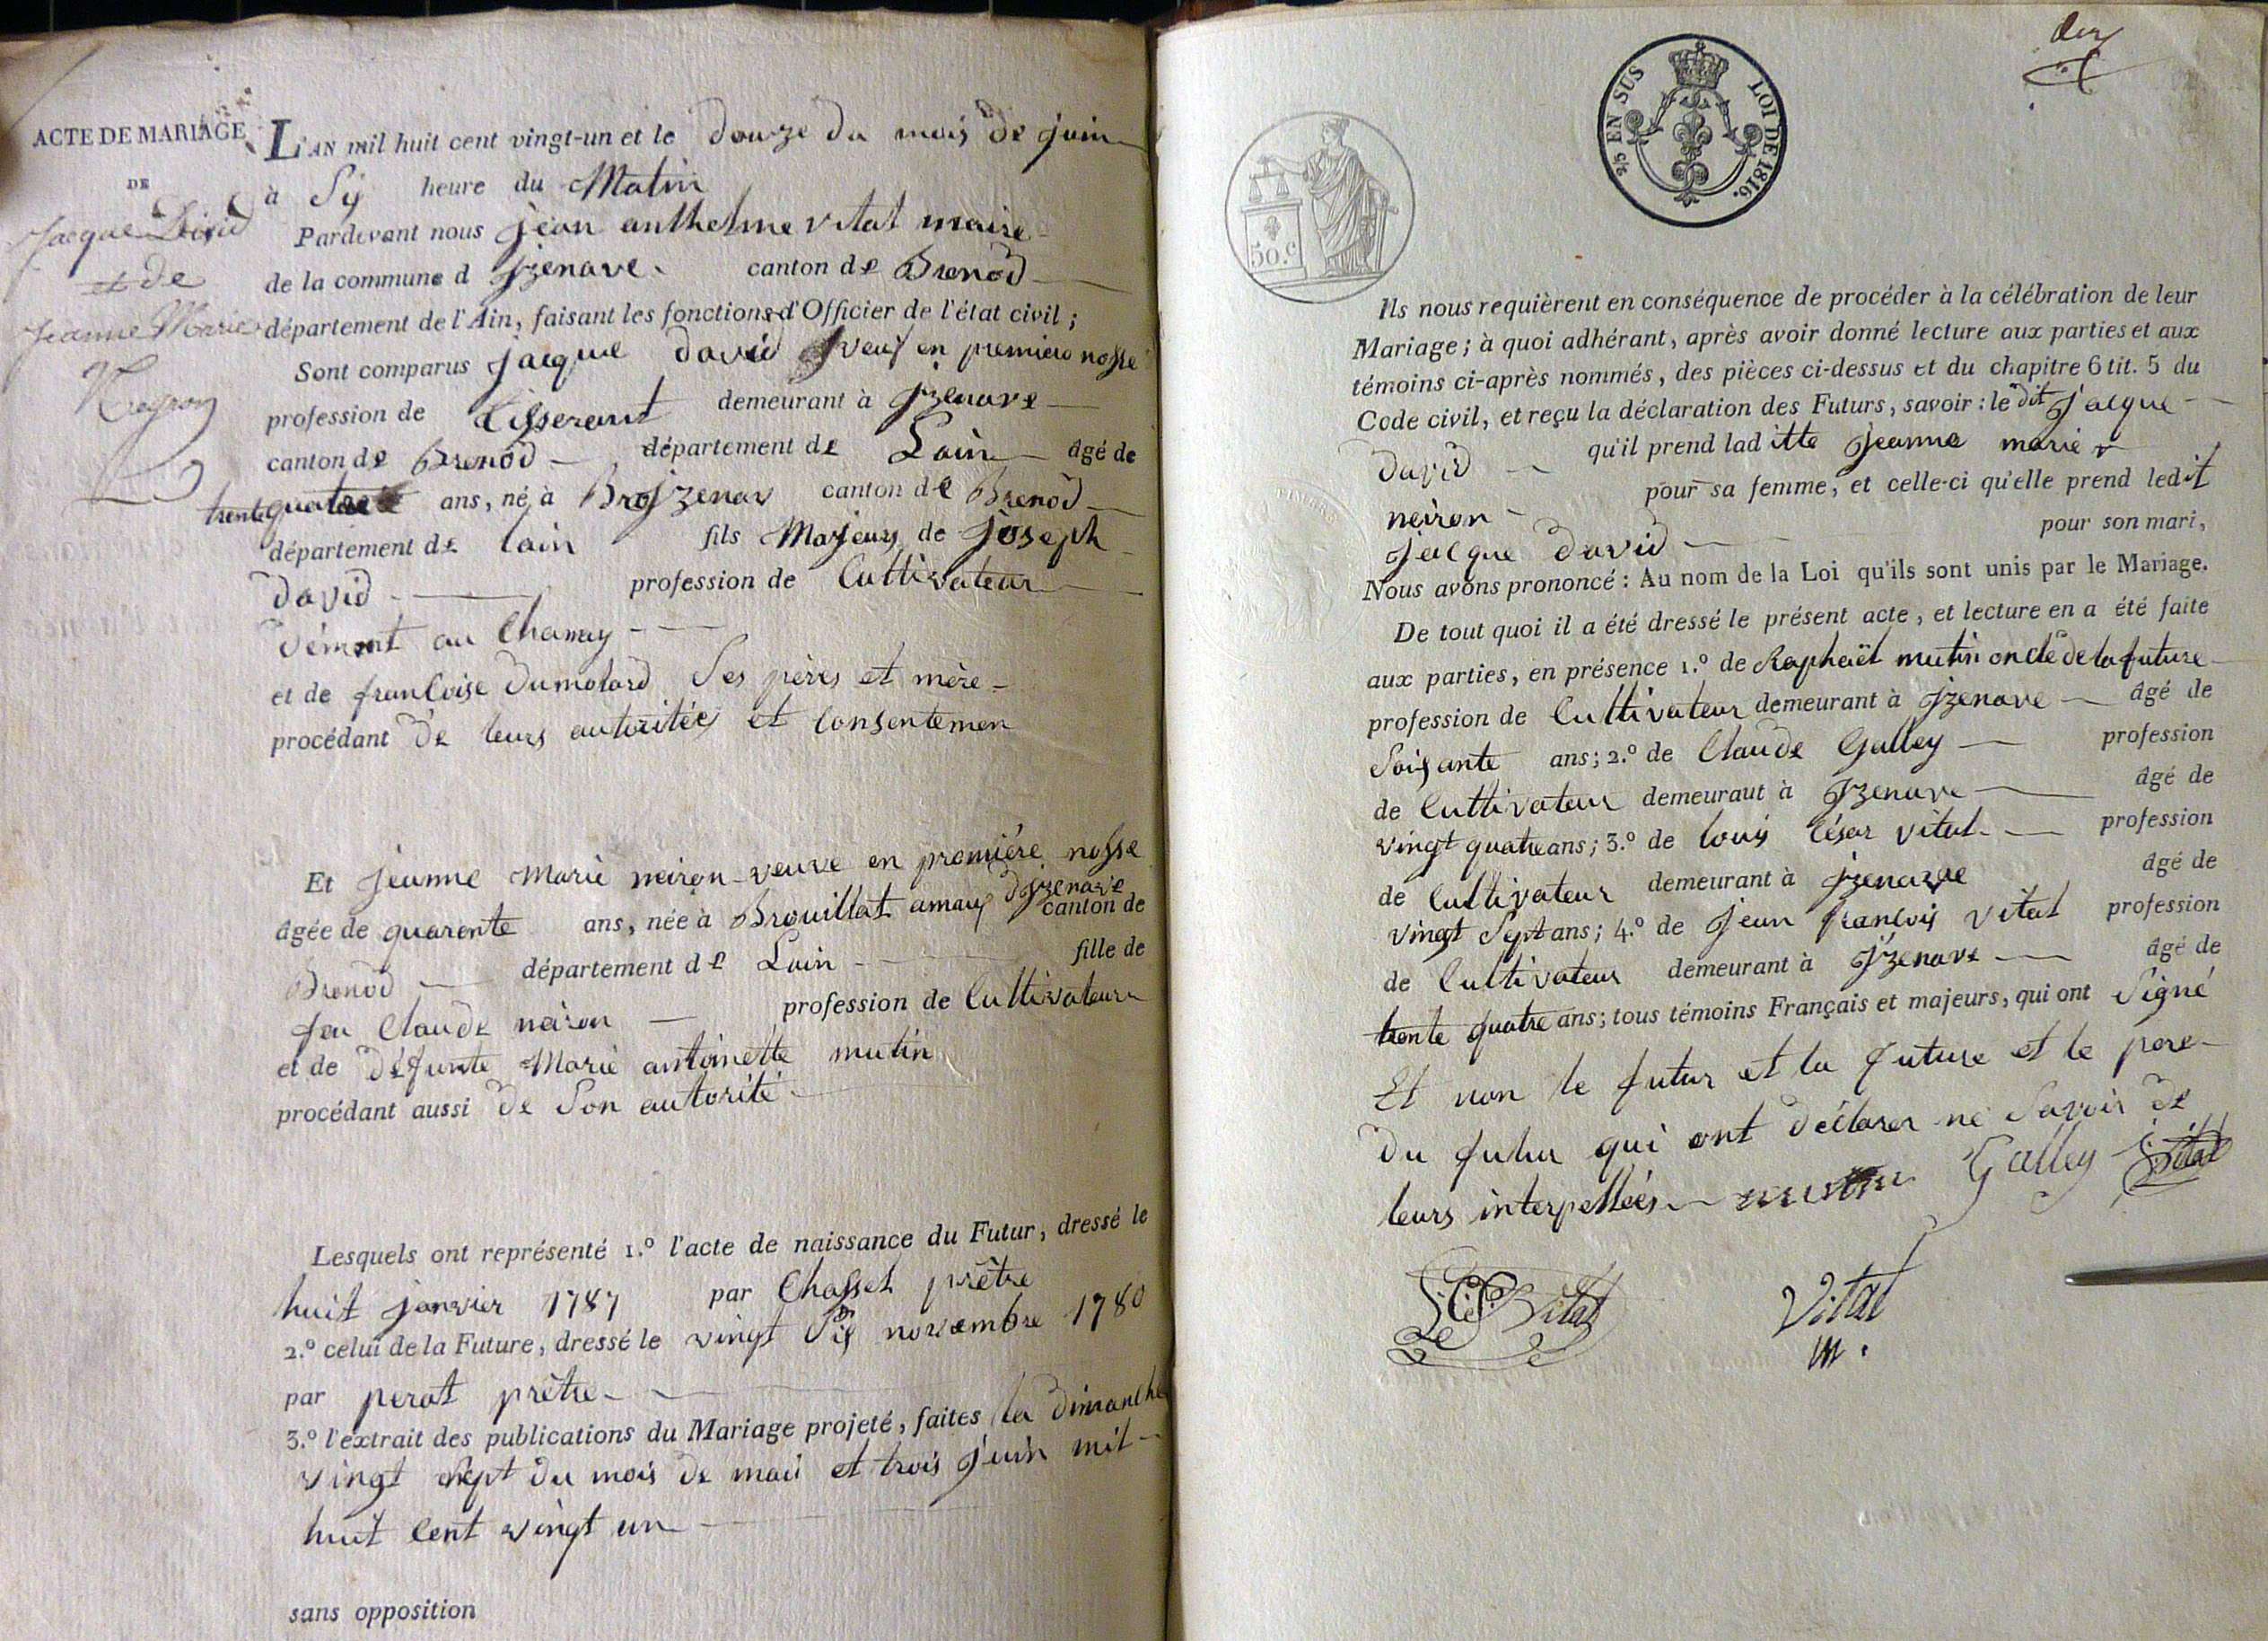 ACTE DE MARIAGE
DE
Jacque David
et de
Jeanne Marie
Neyron
L'AN mil huit cent vingt-un et le douze du mois de juin
à Six heure du Matin
Pardevant nous jean anthelme vital maire
de la commune d izenave canton de Brenod
département de l'Ain, faisant les fonctions d'Officier de l'état civil ;
Sont comparus jacque david veuf en premiere nosse
profession de tisserant demeurant à izenave
canton de Brenod département de Lain âgé de
trente quatre ans, né à izenav canton de Brenod
département de lain fils Majeur de joseph
david profession de Cultivateur
démont au Chamay
et de francoise dumolard Ses pères et mère
procédant de leurs autoritées et consentemen
Et jeanne Marie neiron veuve en première nosse
âgée de quarente ans, née à Brouillat amaux dizenave canton de
Brenod département de Lain fille de
feu Claude neiron profession de Cultivateur
et de défunte Marie antoinette mutin
procédant aussi de Son autorité
Lesquels ont représenté 1.º l'acte de naissance du Futur, dressé le
huit janvier 1787 par Chasset prêtre
2.º celui de la Future, dressé le vingt Six novembre 1780
par perat prêtre
3.º l'extrait des publications du Mariage projeté, faites la dimanche
vingt Sept du mois de mai et trois juin mil
huit Cent vingt un
sans opposition
2/5 EN SUS LOI DE 1816.
50.C
Ils nous requièrent en conséquence de procéder à la célébration de leur
Mariage ; à quoi adhérant, après avoir donné lecture aux parties et aux
témoins ci-après nommés, des pièces ci-dessus et du chapitre 6 tit. 5 du
Code civil, et reçu la déclaration des Futurs, savoir : le dit jacque
david qu'il prend lad itte jeanne marie
neiron pour sa femme, et celle-ci qu'elle prend ledit
jacque david pour son mari,
Nous avons prononcé : Au nom de la Loi qu'ils sont unis par le Mariage.
De tout quoi il a été dressé le présent acte, et lecture en a été faite
aux parties, en présence 1.º de Raphaët mutin oncle de la future
profession de Cultivateur demeurant à izenave âgé de
Soixante ans ; 2.º de Claude Galley profession
de Cultivateur demeuraut à izenave âgé de
vingt quatre ans ; 3.º de louis César vital profession
de Cultivateur demeurant à izenave âgé de
vingt Sept ans ; 4.º de jean francois vital profession
de Cultivateur demeurant à izenave âgé de
trente quatre ans ; tous témoins Français et majeurs, qui ont Signé
Et non le futur et la future et le pere
du futur qui ont déclarer ne Savoir de
leurs interpellées mutin Galley Vital
Vital Vital
m.